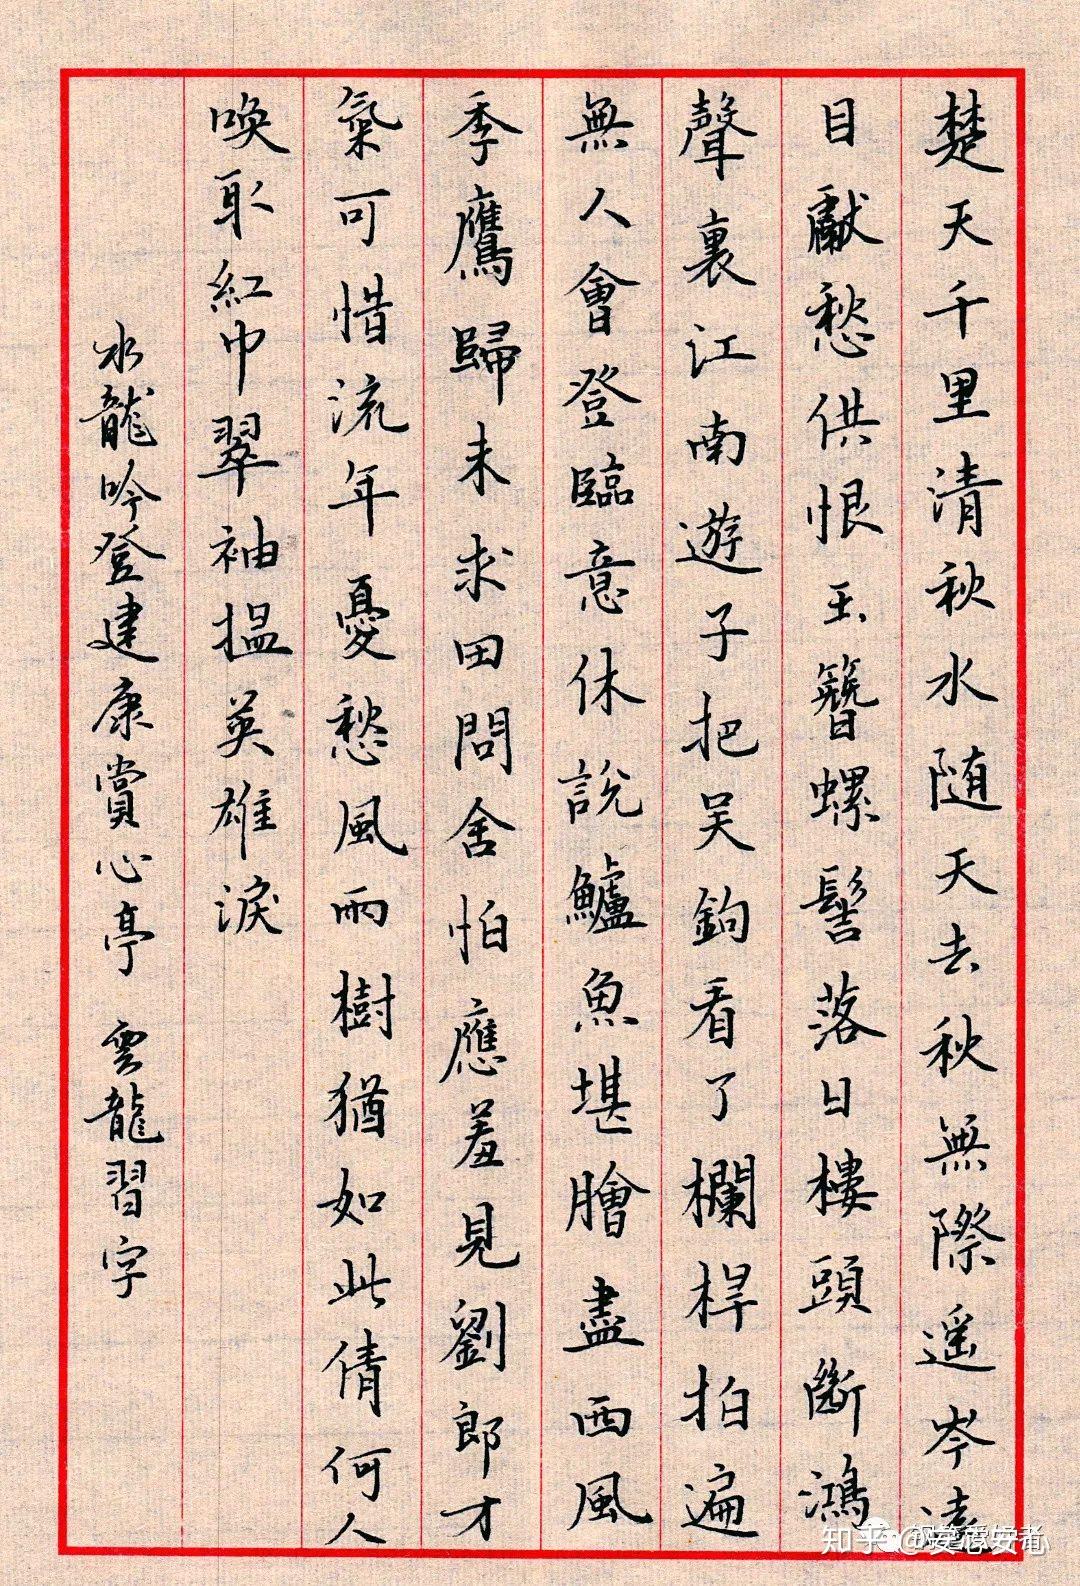 楚天千里清秋水随天去秋無際遥岑遠
目獻愁供恨玉簪螺髻落日樓頭斷鴻
聲裏江南遊子把吴鉤看了欄桿拍遍
無人會登臨意休說鱸魚堪膾盡西風
季鷹歸未求田問舍怕應羞見劉郎才
氣可惜流年憂愁風雨樹猶如此倩何人
喚取紅巾翠袖揾英雄淚
水龍吟登建康賞心亭 雲龍習字
知乎